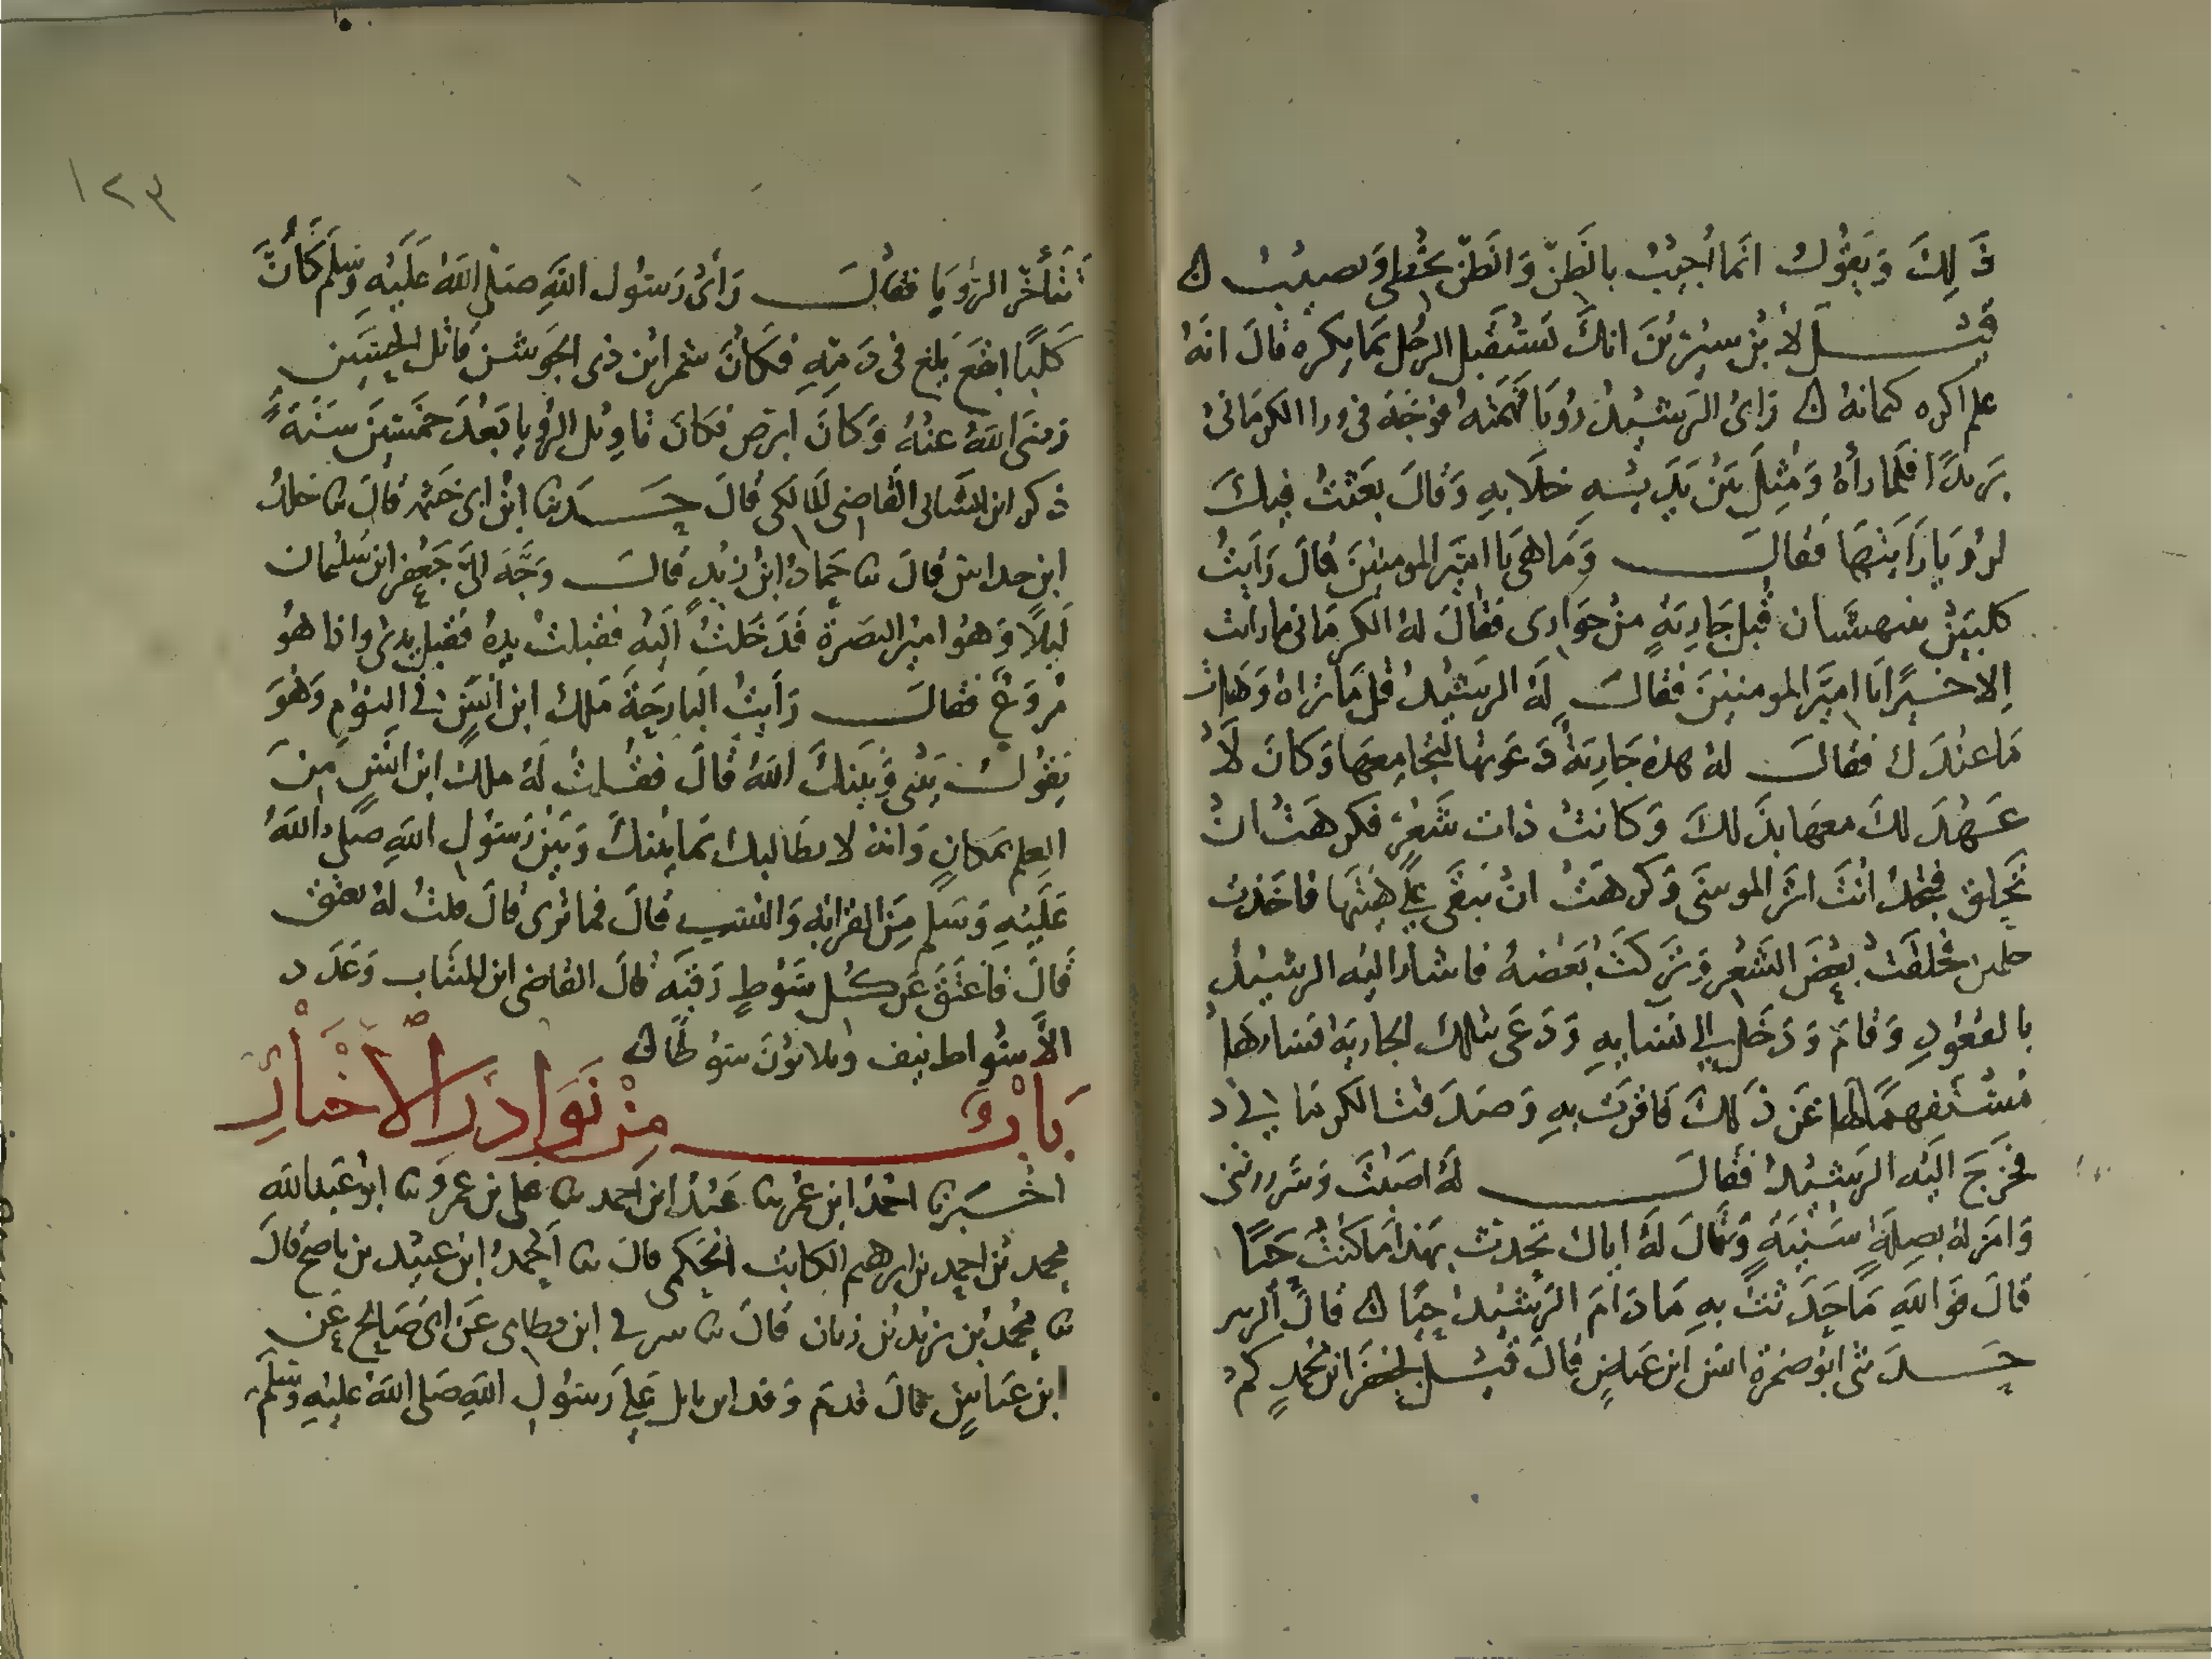 ذَلِكَ وَيَقُولُ انَما اُجيبُ بالظَنّ وَالظَنّ يخُطي وَيصيبُ ه
قيل لابْن سيْرينَ انك تَستَقبل الرجُل بمَا يكره قالَ انهُ
علم اكره كتمانهُ ه رَاىُ الرَشيدُ رُويَا فهَمتهُ فوَجّهَ في ورا الكرمَاني
بَريدًا فلما رأهُ وَمُثِلَ بَيْن يَدَيْهِ خلَا بهِ وَقالَ بعَثتُ فيكَ
لرُويَا رَايتهَا فَقالَ وَمَا هيَ يَا اميَر المومنينَ قالَ رَايتُ
كلبَيْن ينهشَان قُبل جَاريَةٍ منْ جَوَارى فقَالَ لهُ الكرمَاني مَا رَايت
اِلا خيرًا يَا اميَر المومنينَ فقالَ لَهُ الرَشيدُ قل مَا ترَاهُ وَهَات
مَا عندَك فقالَ لهُ هذه جَاريَةُ دَعوتهَا لتجامعهَا وَكانَ لَا
عَهْدَ لكَ معهَا بذَلكَ وَكانَتْ ذات شَعْرٍ فكرهَتْ انْ
تَحلق فتجدُ انتَ اثر الموسَى وَكرهَتْ انْ تبقَى علَى هَيئتِهَا فاخَذت
جلمين فحلقَتْ بعْضَ الشَعْرِ وَتَركَتْ بَعْضهُ فاشارَ اليْهِ الرشيدُ
بالقعُودِ وَقامَ وَدَخل الي نسَايهِ وَدَعَى بتلكَ الجاريَة فسَارَهَا
مُسْتفهمًا لها عَن ذَلكَ فَاقرَتْ بهِ وَصَدَقت الكرمَاني
فخَرجَ اليَه الرَشيدُ فقالَ لهُ اصَبْتَ وَسَررتني
وَامَر لهُ بصِلَةٍ سَنيَةٍ وَقالَ لَهُ اياك تحدث بهَذا مَا كنْتُ حَيًا
قالَ فوَاللهِ مَا حَدَثتُ بهِ مَا دَامَ الرَشيدُ حيًا ه قالَ الزبير
حَدَثني ابوُ ضمرَة انس ابن عيَاضٍ قالَ قيْل لجعْفَر ابن مُحَمدٍ كم
١٢٣
تَتَأخّر الرُويَا فقالَ رَأىَ رَسُول اللهِ صَلى اللهُ عَلَيْهِ وَسَلم كَأنَّ
كَلبًا ابقعَ يَلغ في دَمِهِ فكَانَ شمر ابْن ذى الجوشن قاتل الحسَيْن
رَضىَ اللهُ عنْهُ وَكانَ ابرَص فكَانَ تاوِيل الرُويا بَعْدَ خمْسينَ سَنَةً
ذكر ابن المنتاب القَاضى المَالكى قالَ حَدثنا ابْن ابى خيثمة قالَ ثنا خالدُ
ابن خداش قالَ ثنا حَمادُ ابْن زيْدٍ قالَ وَجَّهَ الىّ جَعْفر ابن سُليْمان
لَيلًا وَهوُ اميْر البصَرة فدَخَلتُ اليَهِ فقبلتُ يدهُ فقبل يدى واذا هوُ
مُرَوَعٌ فقالَ رَايتُ البَارحَةَ مَلك ابن انسٍ في النوْمِ وَهْوَ
يَقُولُ بَيْني وَبينكَ اللهُ قالَ فقلتُ لَهُ ملك ابن انَسٍ مِنَ
العِلمِ بمكانٍ وَانهُ لا يطَالبك بمَا بيْنكَ وَبَيْن رَسُول اللهِ صَلى اللهُ
عَلَيْهِ وَسَلم مِنَ القرَابةِ وَالنَسَب قالَ فما ترى قالَ قلتُ لهُ تعتق
قالَ فاعتَقَ عَن كُل سَوْطٍ رَقبَه قالَ القاضى ابن المنتاب وَعَدَد
الأسْوَاط نيف وثلاثوُنَ سوْطًا ه
بَابُ مِنْ نَوَادرِ الاخْبَارِ
اخْبَرنا احْمدُ ابن عُمَر ثنا عَبْدُ ابن احمد ثنا على بن عمرو ثنا ابوُ عَبْد الله
محمد بْن احمد بن ابرهيم الكاتبُ الحَكمي قالَ ثنا احْمدُ ابْن عبيْد بن ناصح قالَ
ثنا مُحَمدُ بْن زيد بْن زبان قالَ ثنا شرقي ابن قطامي عَن ابى صَالحٍ عَنِ
ابن عبَاسٍ قالَ قدمَ وَفد ابن وايل عَلى رَسوُل اللهِ صَلى اللهُ عليْهِ وَسَلمَ